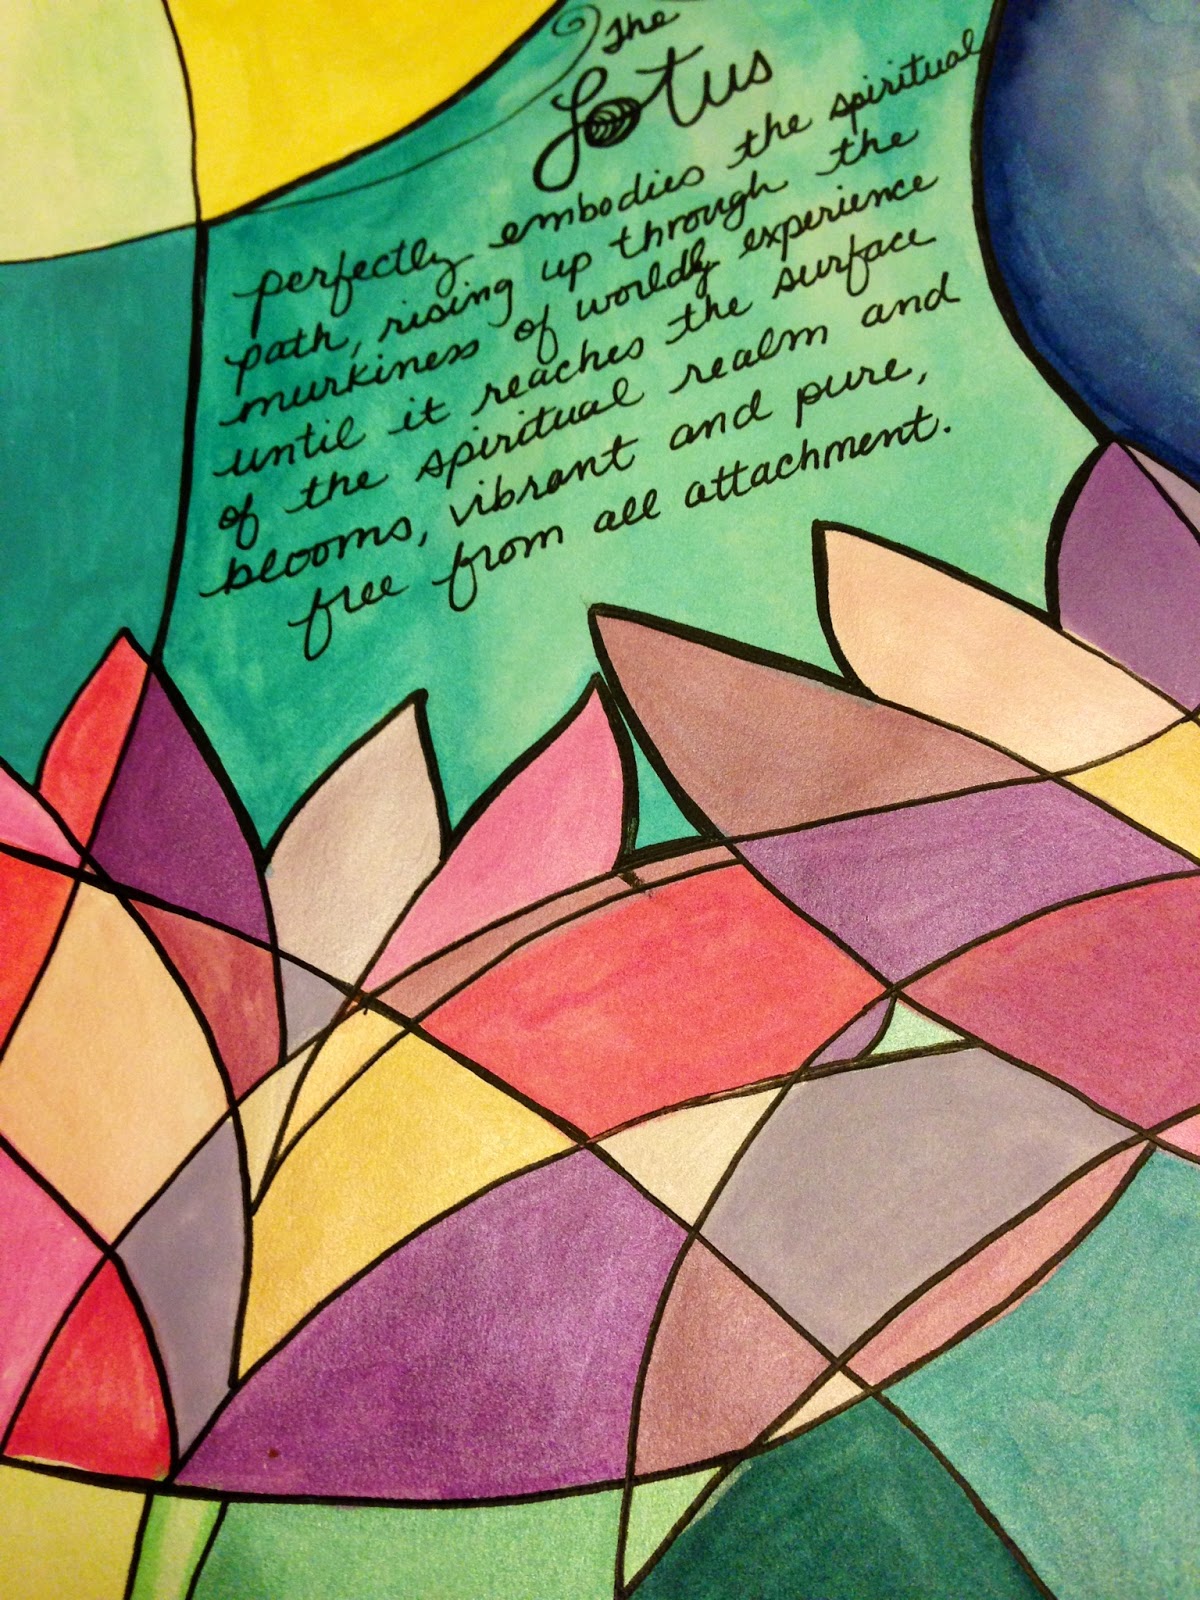 The
Lotus
perfectly embodies the spiritual
path, rising up through the
murkiness of worldly experience
until it reaches the surface
of the spiritual realm and
blooms, vibrant and pure,
free from all attachment.